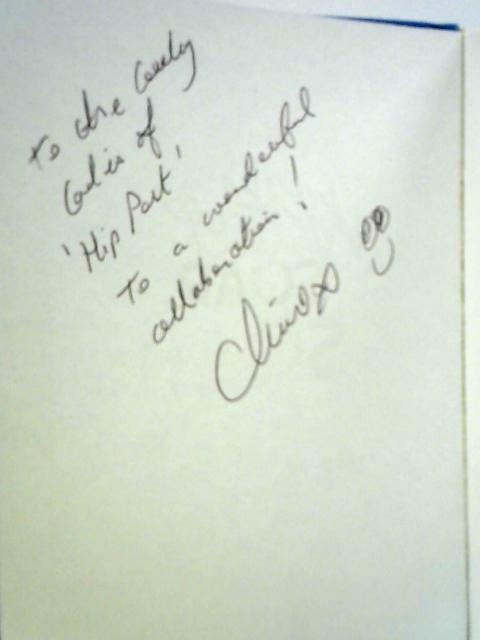 To the lovely
ladies of
'Hip Part'
To a wonderful
collaboration!